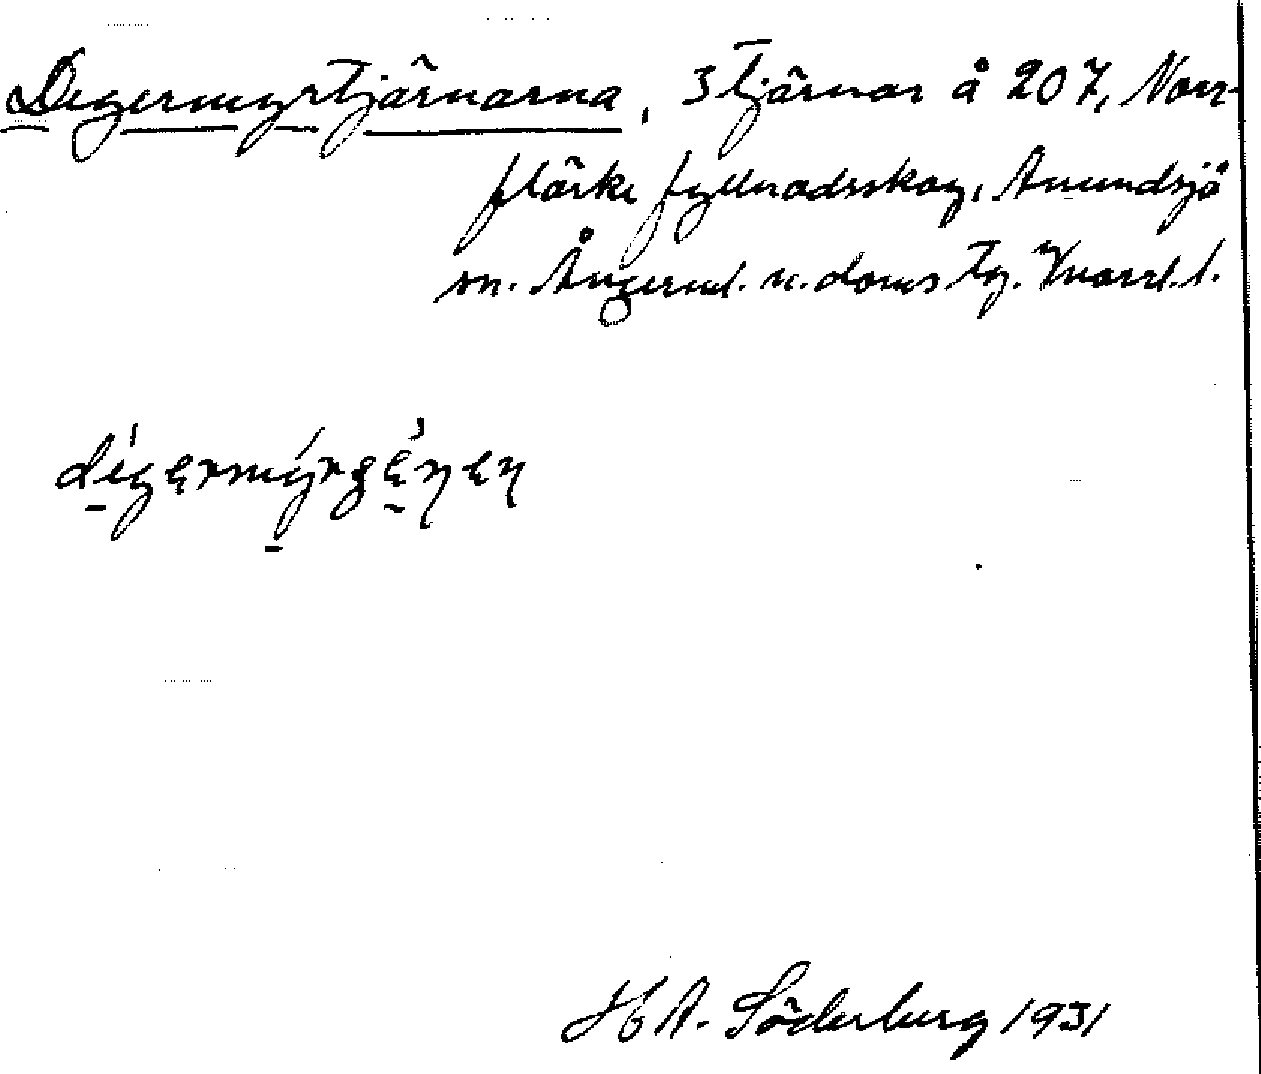 Degermyrtjärnarna, 3 tjärnar å 207, Norr-
flärke fyllnadsskog, Anundsjö
sn. Ångerml. n. doms tg. Vnorrl. l.
H A. Söderberg 1931